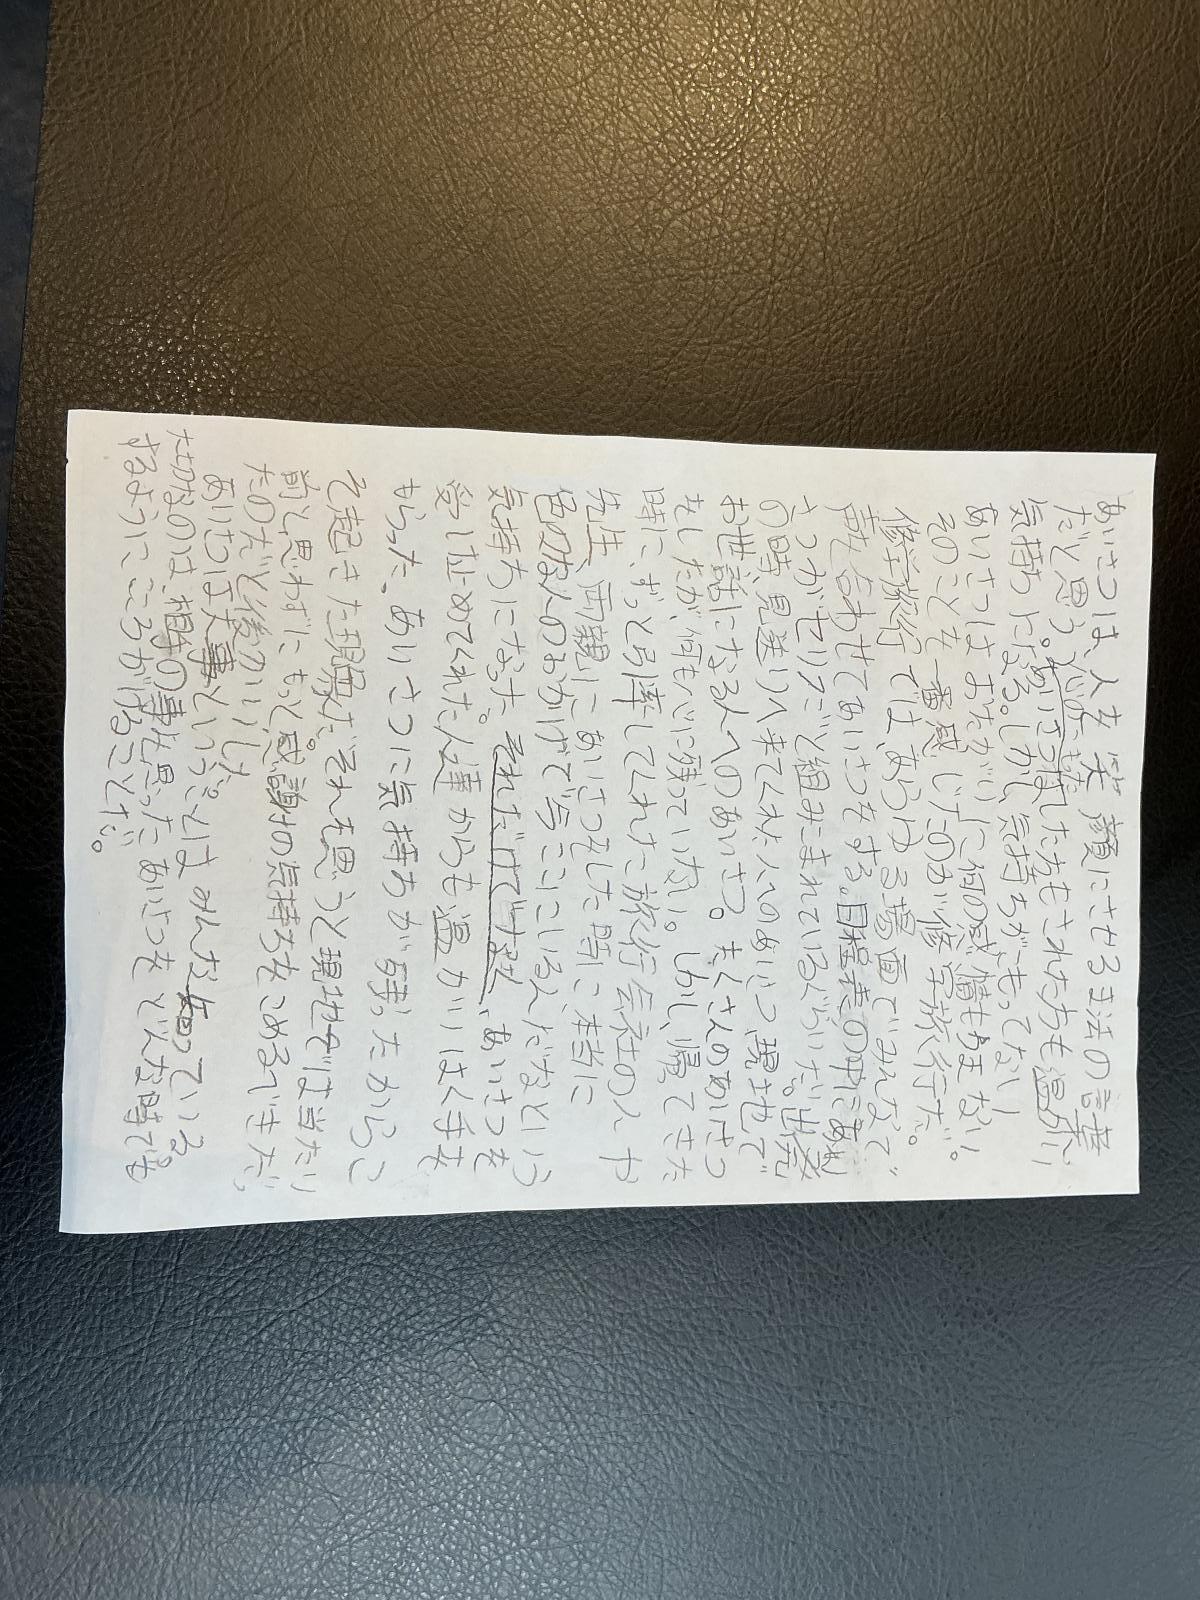 あいさつは、人を笑顔にさせる魔法の言葉
だと思う。心のこもったあいさつは、した方もされた方も温かい
気持ちになる。しかし、気持ちがこもってないし
あいさつはおたがいに何の感情も生まない。
そのことを一番感じたのが修学旅行だ。
修学旅行では、あらゆる場面でみんなで
声を合わせてあいさつをする。日程表の中にあい
さつがセリフまで組みこまれているぐらいだ。出発
の時、見送りへ来てくれた人へのあいさつ、現地で
お世話になる人へのあいさつ。たくさんのあいさつ
をしたが、何も心に残っていない。しかし、帰ってきた
時に、ずっと引率してくれた旅行会社の人や
先生、両親にあいさつをした時に、本当に
色々な人のおかげで今ここにいるんだなという
気持ちになった。それだけでなく、あいさつを
受け止めてくれた人達からも温かいはく手を
もらった。あいさつに気持ちが乗ったからこ
そ起きた現象だ。それを思うと現地では当たり
前と思わずにもっと感謝の気持ちをこめるべきだ
ったのだと後かいした。
あいさつは大事ということはみんな知っている。
大切なのは、相手の事を思ったあいさつをどんな時でも
するようにこころがけることだ。